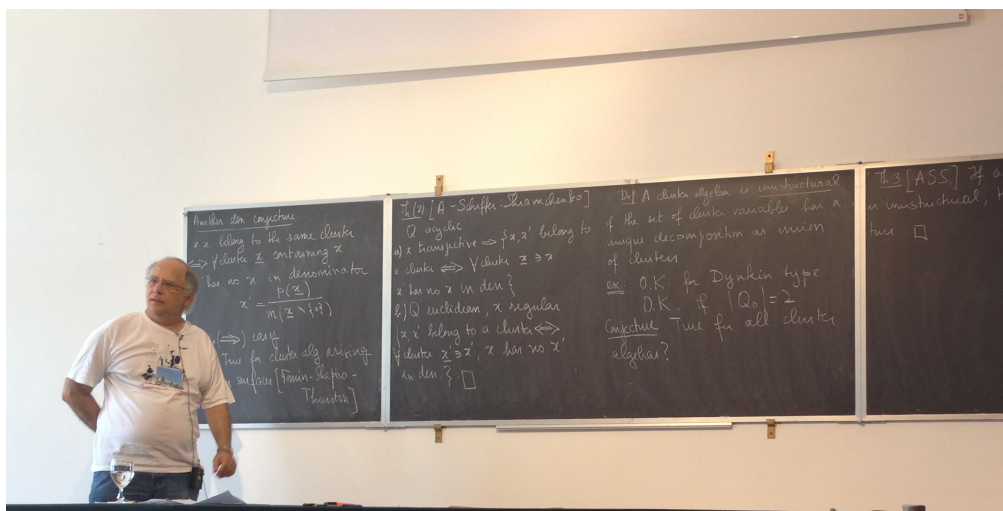 Another den conjecture
x x' belong to the same cluster
⟺ ∀ cluster x containing x
x' has no x in denominator
x' = P(x) / m(x \ {x})
(⟹) easy
True for cluster alg arising
surfaces [Fomin-Shapiro-
Thurston]
Th (2) [A-Schiffler-Shramchenko]
Q acyclic
a) x transjective ⟹ {x, x' belong to
a cluster ⟺ ∀ cluster x ∋ x
x has no x in den }
b) Q euclidean, x regular
{x, x' belong to a cluster ⟺
∀ cluster x ∋ x', x has no x'
in den.} □
Def A cluster algebra is unistructural
if the set of cluster variables has a
unique decomposition as union
of clusters
ex: O.K. for Dynkin type
O.K. if |Q₀| = 2
Conjecture True for all cluster
algebras?
Th 3 [ASS] If a
is unistructural,
true □